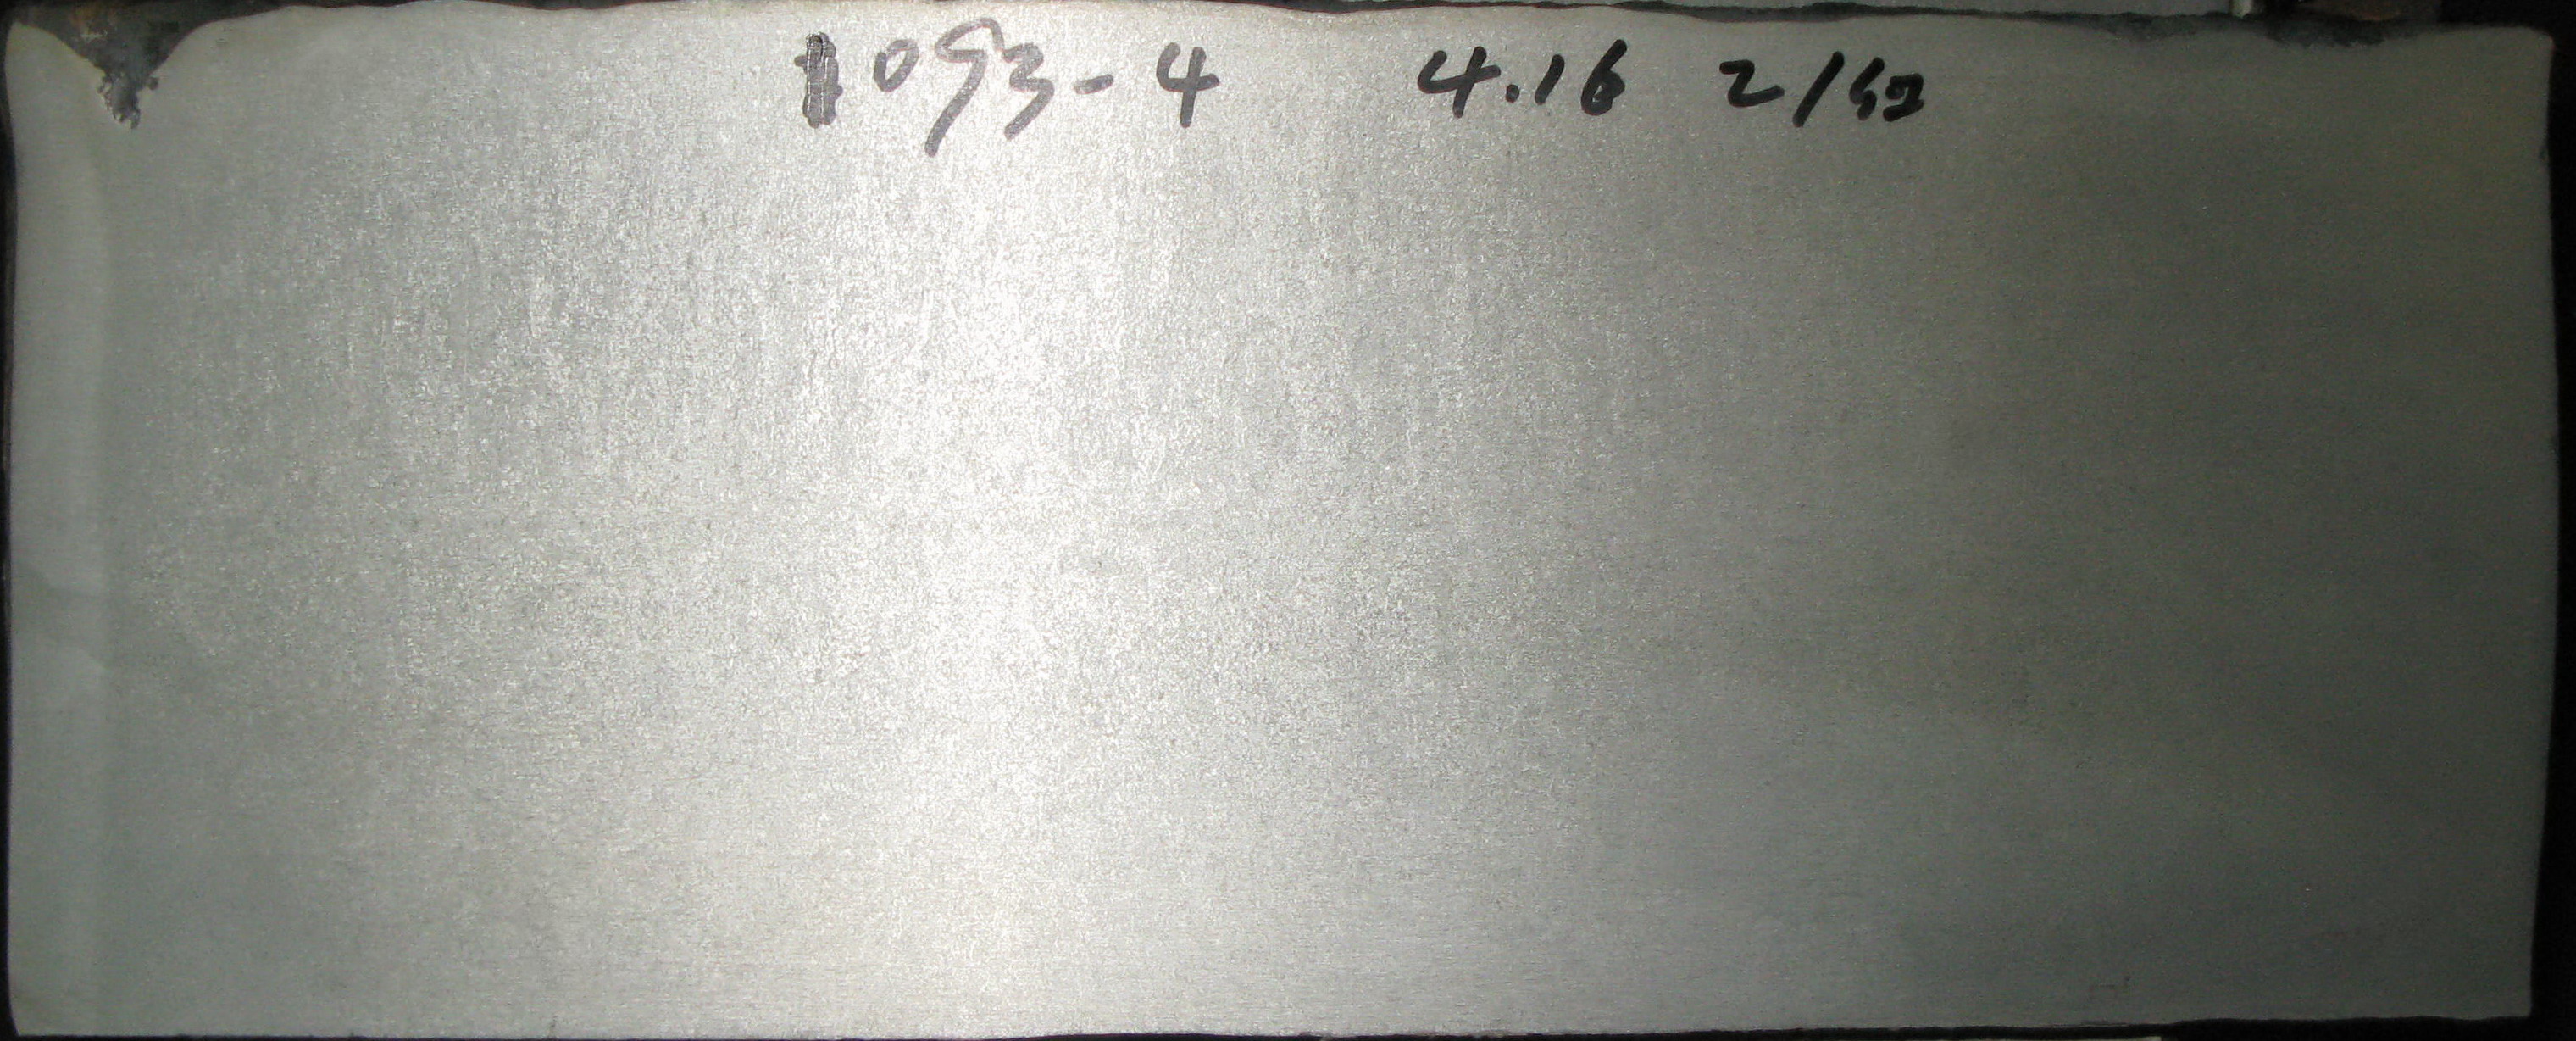 1093-4 4.16 2/纪